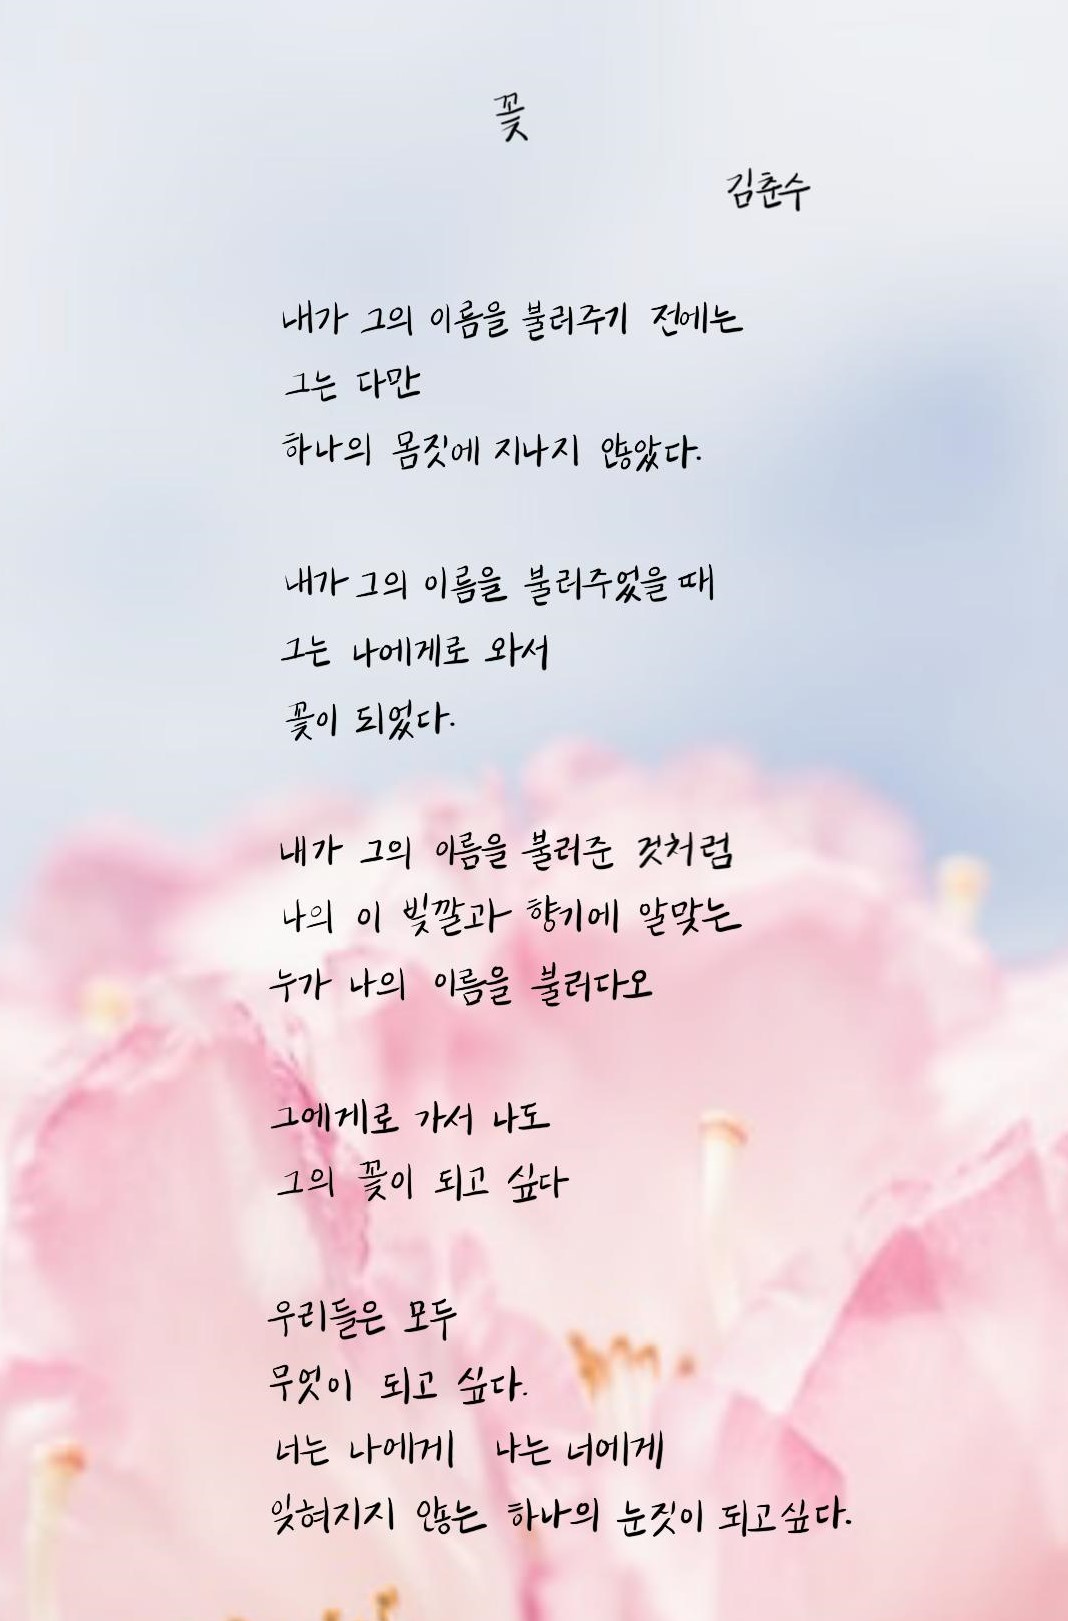 꽃
김춘수
내가 그의 이름을 불러주기 전에는
그는 다만
하나의 몸짓에 지나지 않았다.
내가 그의 이름을 불러주었을 때
그는 나에게로 와서
꽃이 되었다.
내가 그의 이름을 불러준 것처럼
나의 이 빛깔과 향기에 알맞는
누가 나의 이름을 불러다오
그에게로 가서 나도
그의 꽃이 되고 싶다
우리들은 모두
무엇이 되고 싶다.
너는 나에게 나는 너에게
잊혀지지 않는 하나의 눈짓이 되고싶다.